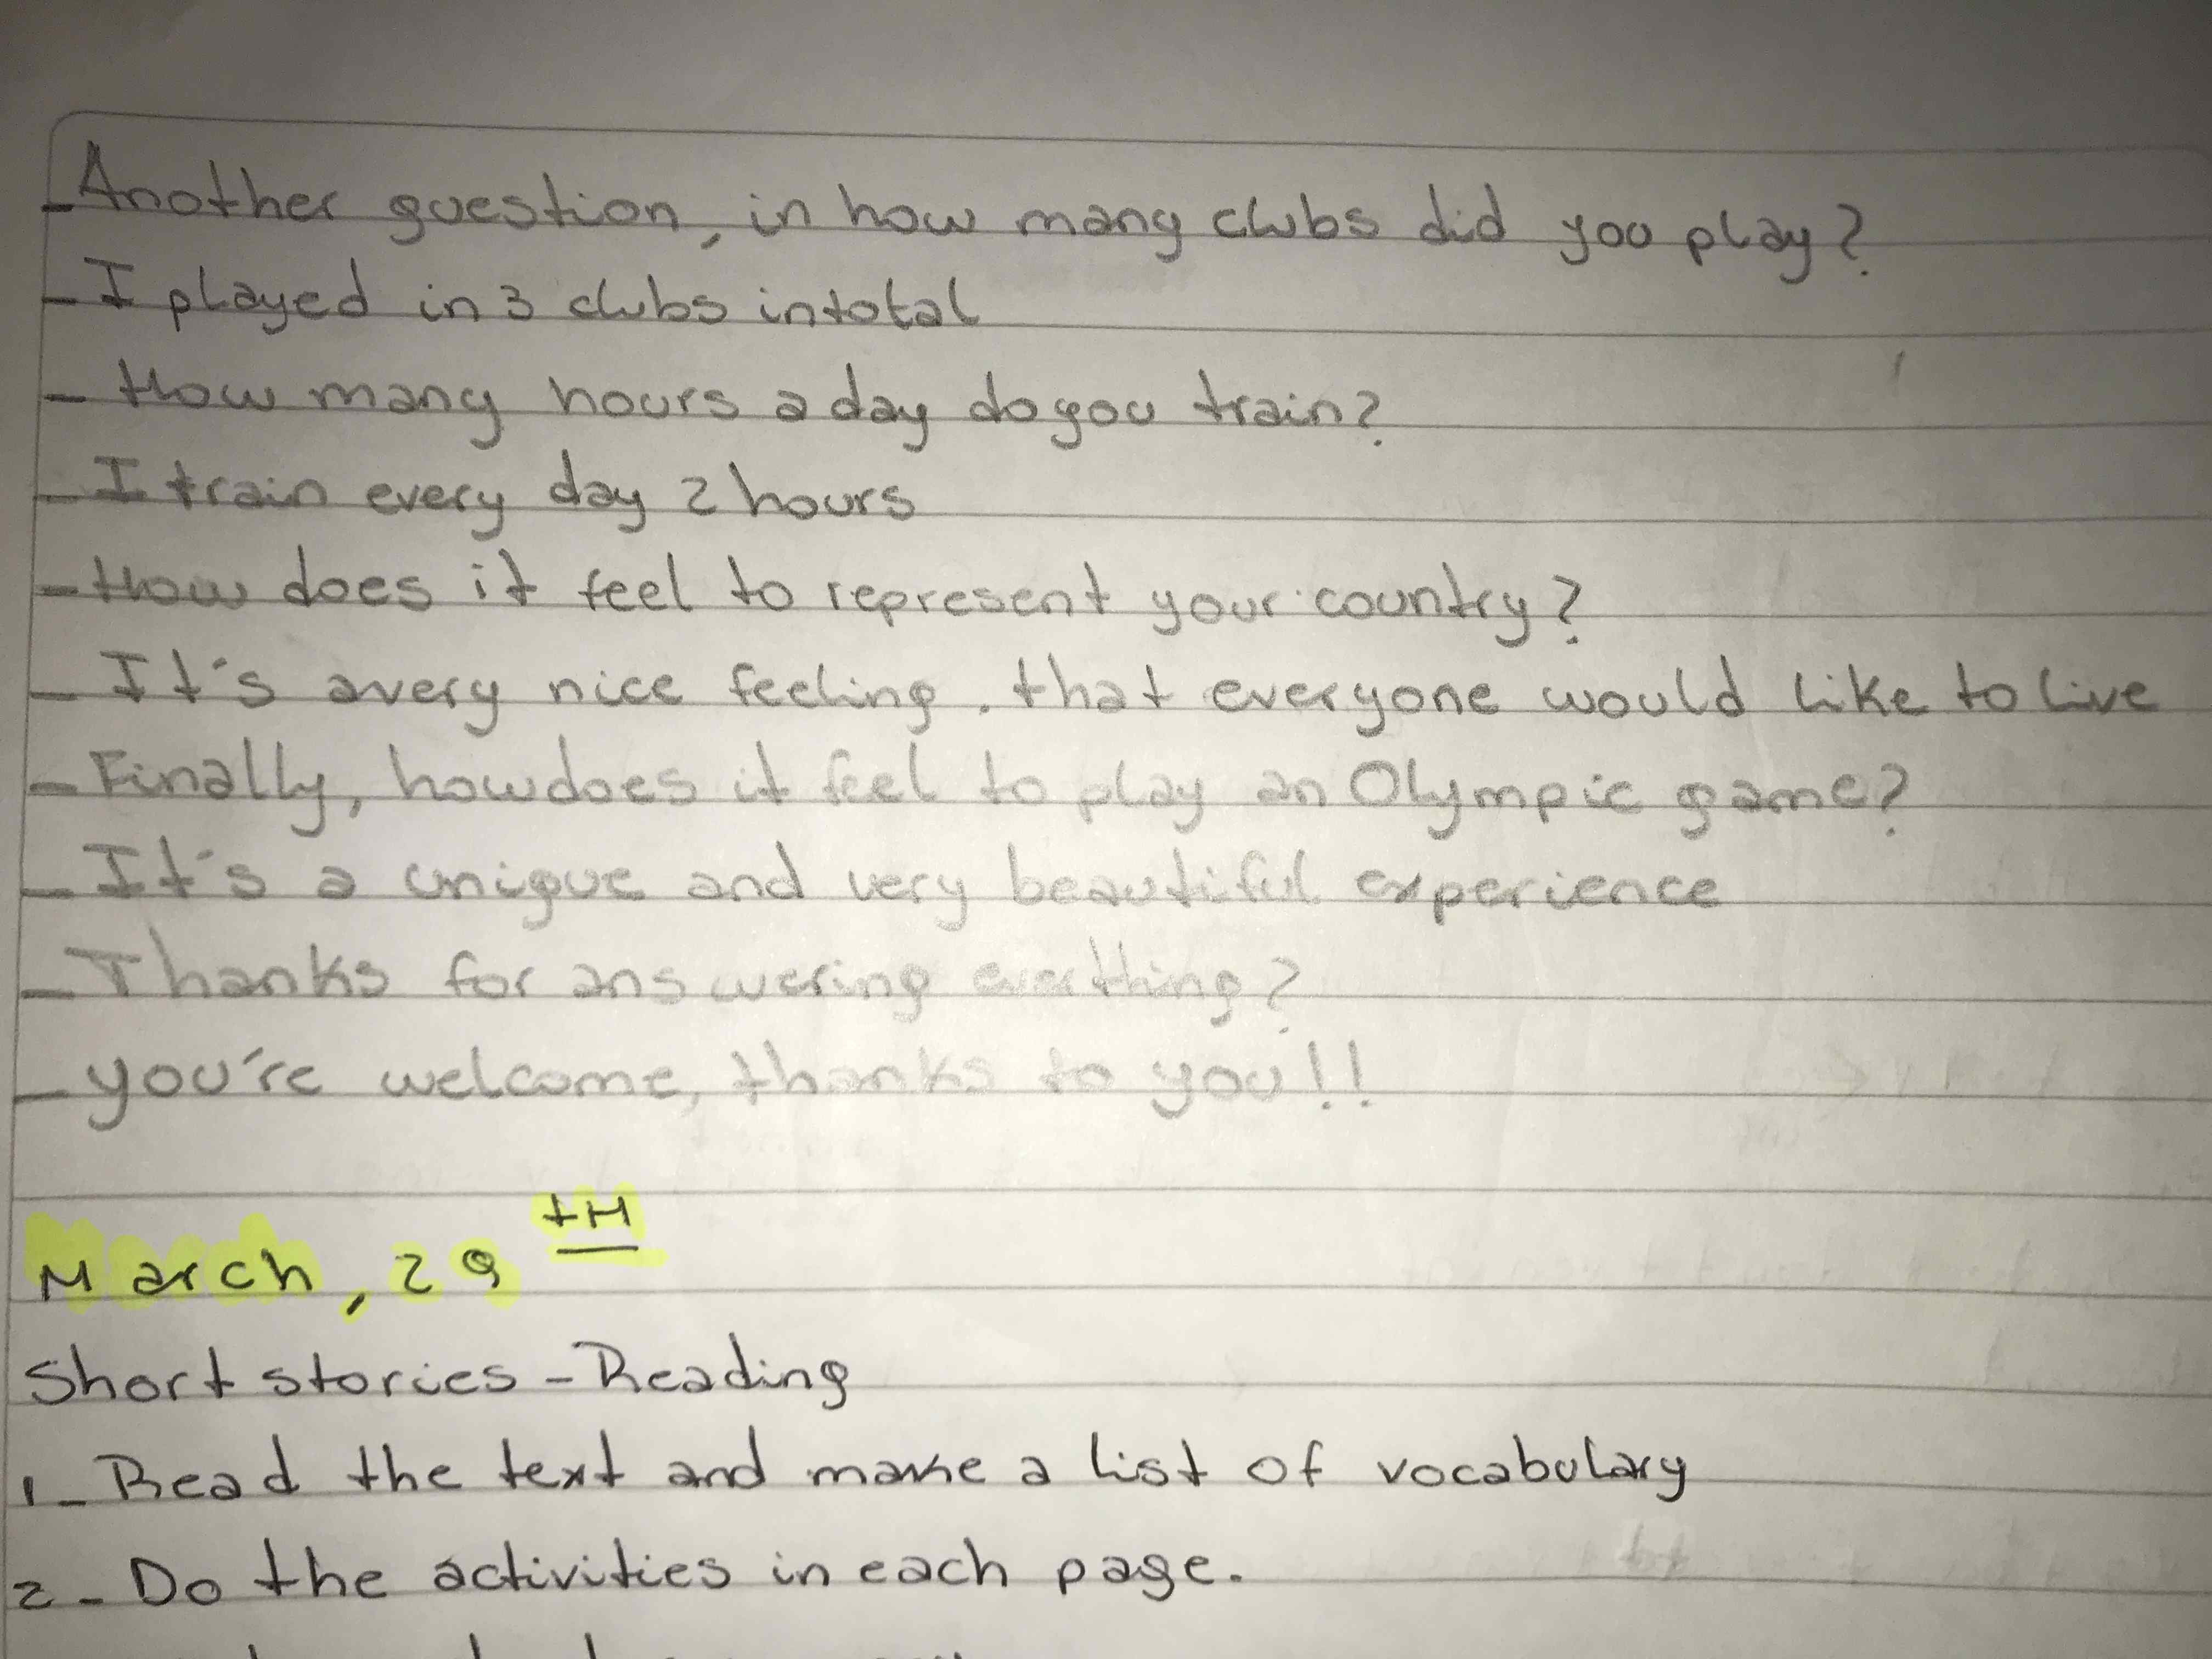 - Another question, in how many clubs did you play?
- I played in 3 clubs in total
- How many hours a day do you train?
- I train every day 2 hours
- How does it feel to represent your country?
- It's a very nice feeling. that everyone would like to live
- Finally, how does it feel to play an Olympic game?
- It's a unique and very beautiful experience
- Thanks for answering everthing?
- you're welcome, thanks to you!!
March, 29 tH
Short stories - Reading
1 - Read the text and make a list of vocabulary
2 - Do the activities in each page.